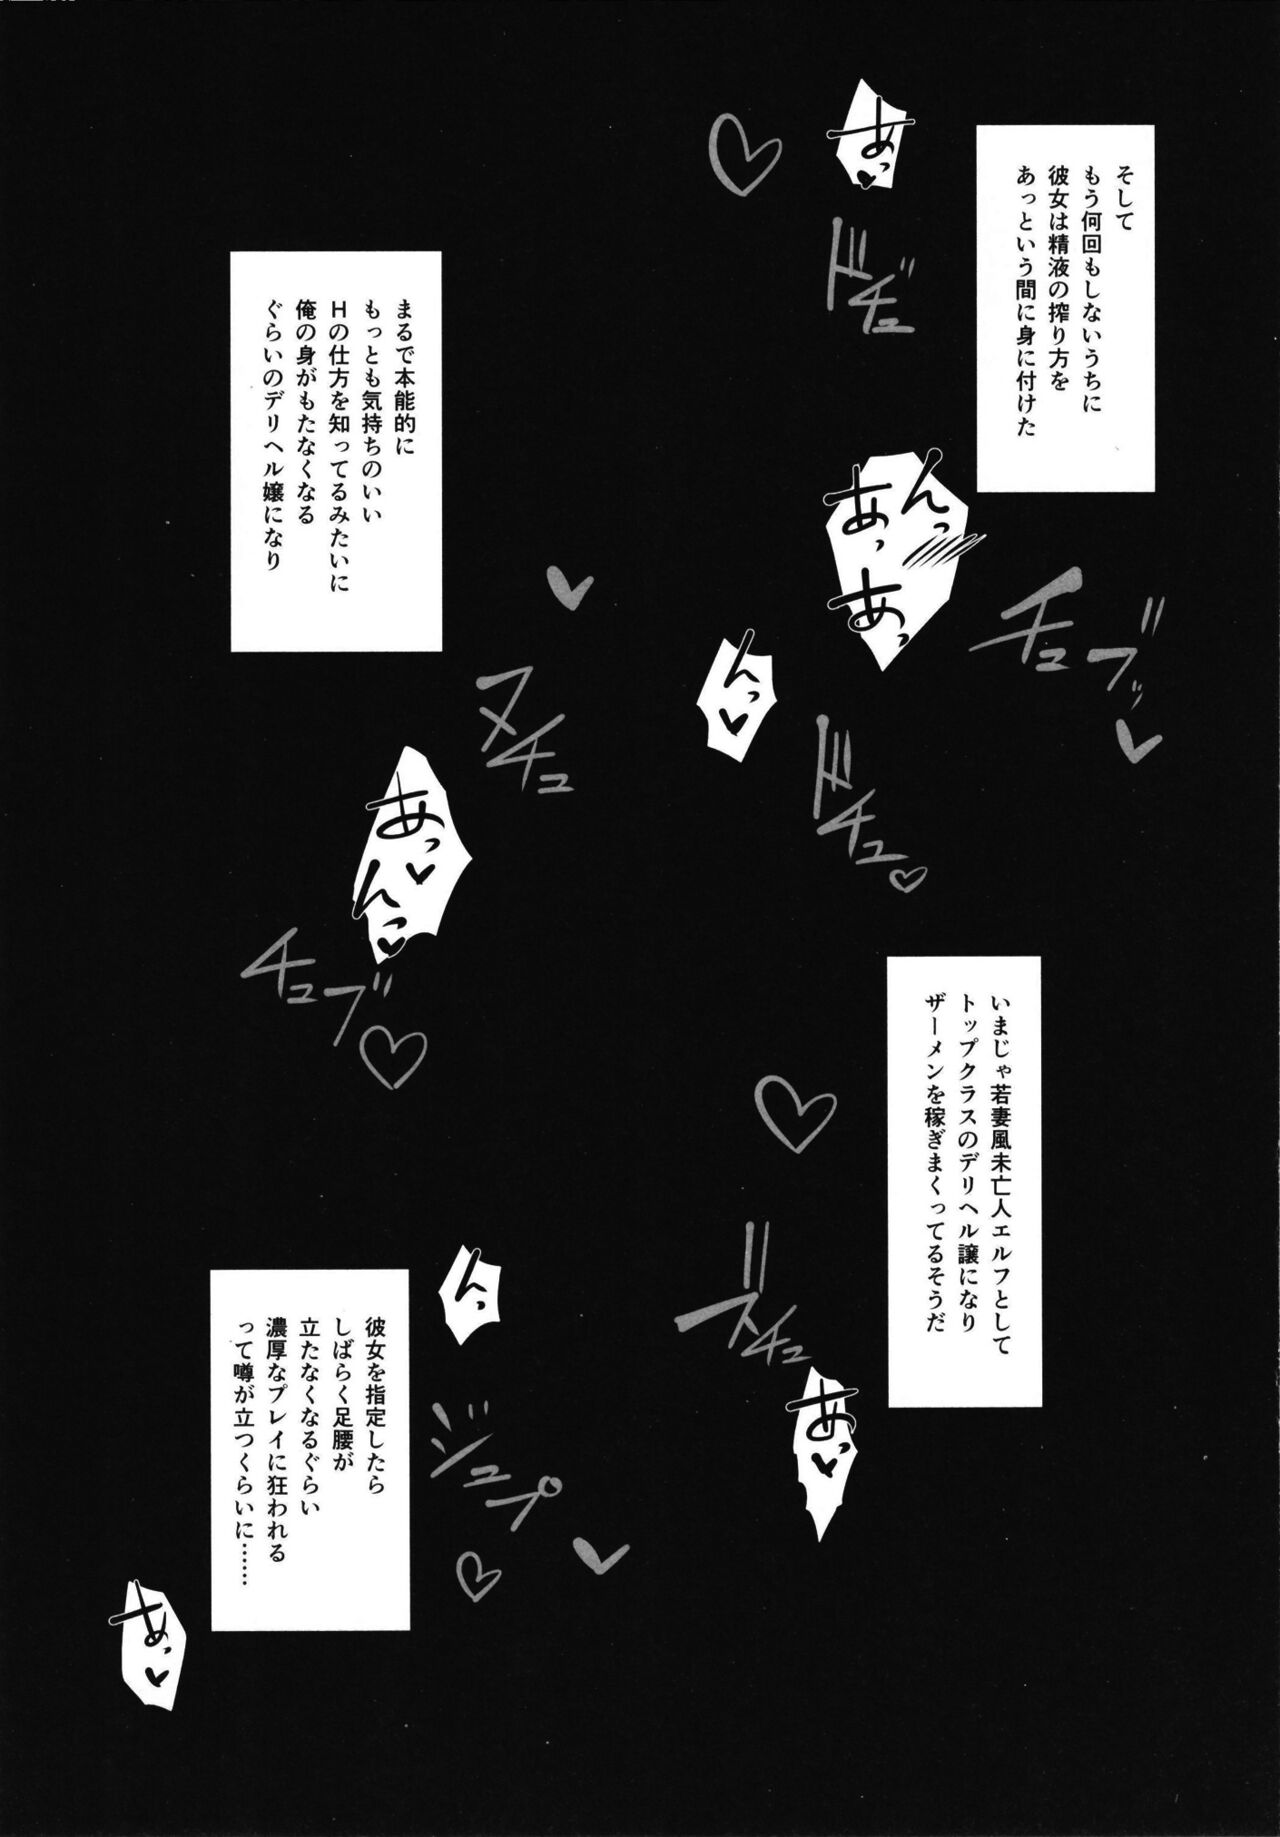 そして
もう何回もしないうちに
彼女は精液の搾り方を
あっという間に身に付けた
あっ♥
ドチュ
んっ
あっ
あっ
チュブッ
んっ♥
ドチュ
まるで本能的に
もっとも気持ちのいい
Hの仕方を知ってるみたいに
俺の身がもたなくなる
ぐらいのデリヘル嬢になり
ヌチュ
あっ♥
んっ♥
チュブ
いまじゃ若妻風未亡人エルフとして
トップクラスのデリヘル譲になり
ザーメンを稼ぎまくってるそうだ
ズチュ
あっ♥
んっ
ジュプ
彼女を指定したら
しばらく足腰が
立たなくなるぐらい
濃厚なプレイに狂われる
って噂が立つくらいに……
あっ♥